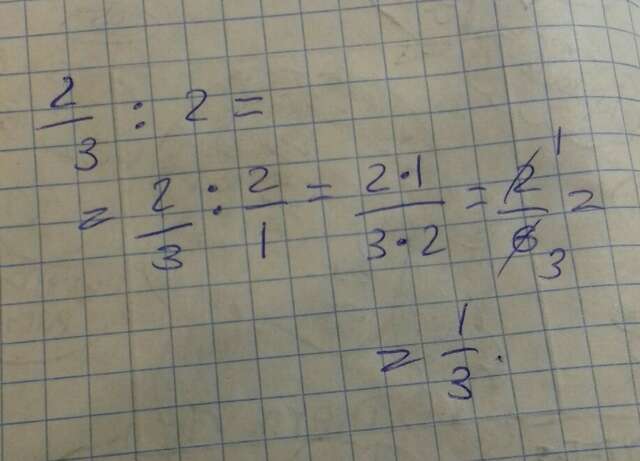 2/3 : 2 =
= 2/3 : 2/1 = 2·1/3·2 = 2/6 1 3 =
= 1/3.